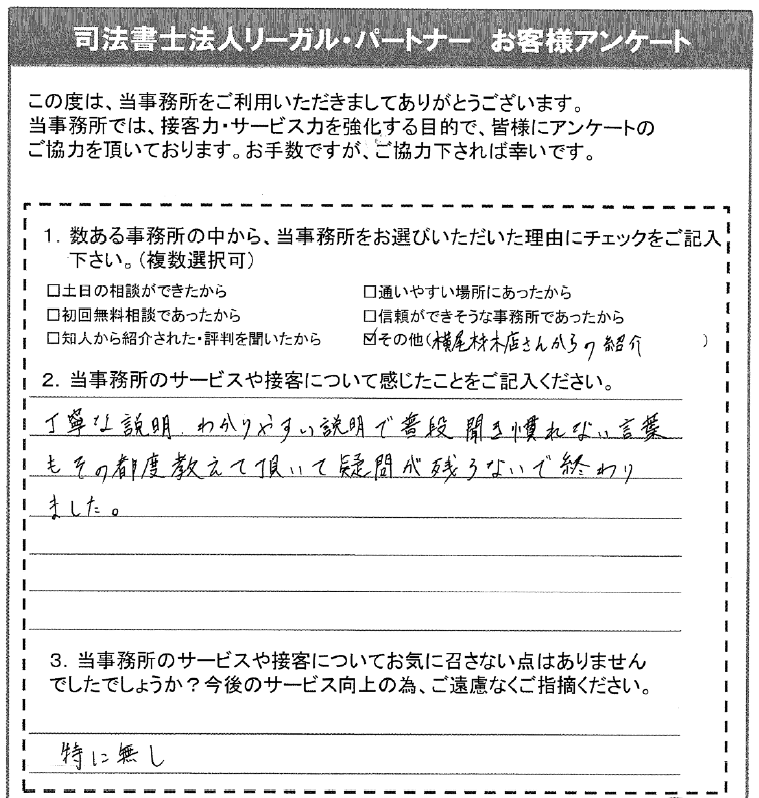 司法書士法人リーガル・パートナー お客様アンケート
この度は、当事務所をご利用いただきましてありがとうございます。
当事務所では、接客力・サービス力を強化する目的で、皆様にアンケートの
ご協力を頂いております。お手数ですが、ご協力下されば幸いです。
1. 数ある事務所の中から、当事務所をお選びいただいた理由にチェックをご記入
下さい。(複数選択可)
□土日の相談ができたから □通いやすい場所にあったから
□初回無料相談であったから □信頼ができそうな事務所であったから
□知人から紹介された・評判を聞いたから ☑その他(横尾材木店さんからの紹介 )
2. 当事務所のサービスや接客について感じたことをご記入ください。
丁寧な説明、わかりやすい説明で普段聞き慣れない言葉
もその都度教えて頂いて疑問が残らないで終わり
ました。
3. 当事務所のサービスや接客についてお気に召さない点はありません
でしたでしょうか?今後のサービス向上の為、ご遠慮なくご指摘ください。
特に無し